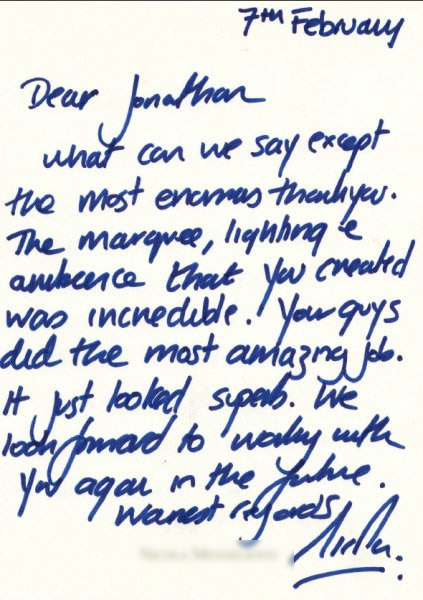 7th February
Dear Jonathan
what can we say except
the most enormous thankyou.
The marquee, lighting &
ambience that you created
was incredible! Your guys
did the most amazing job.
It just looked superb. We
look forward to working with
you again in the future.
Warmest regards